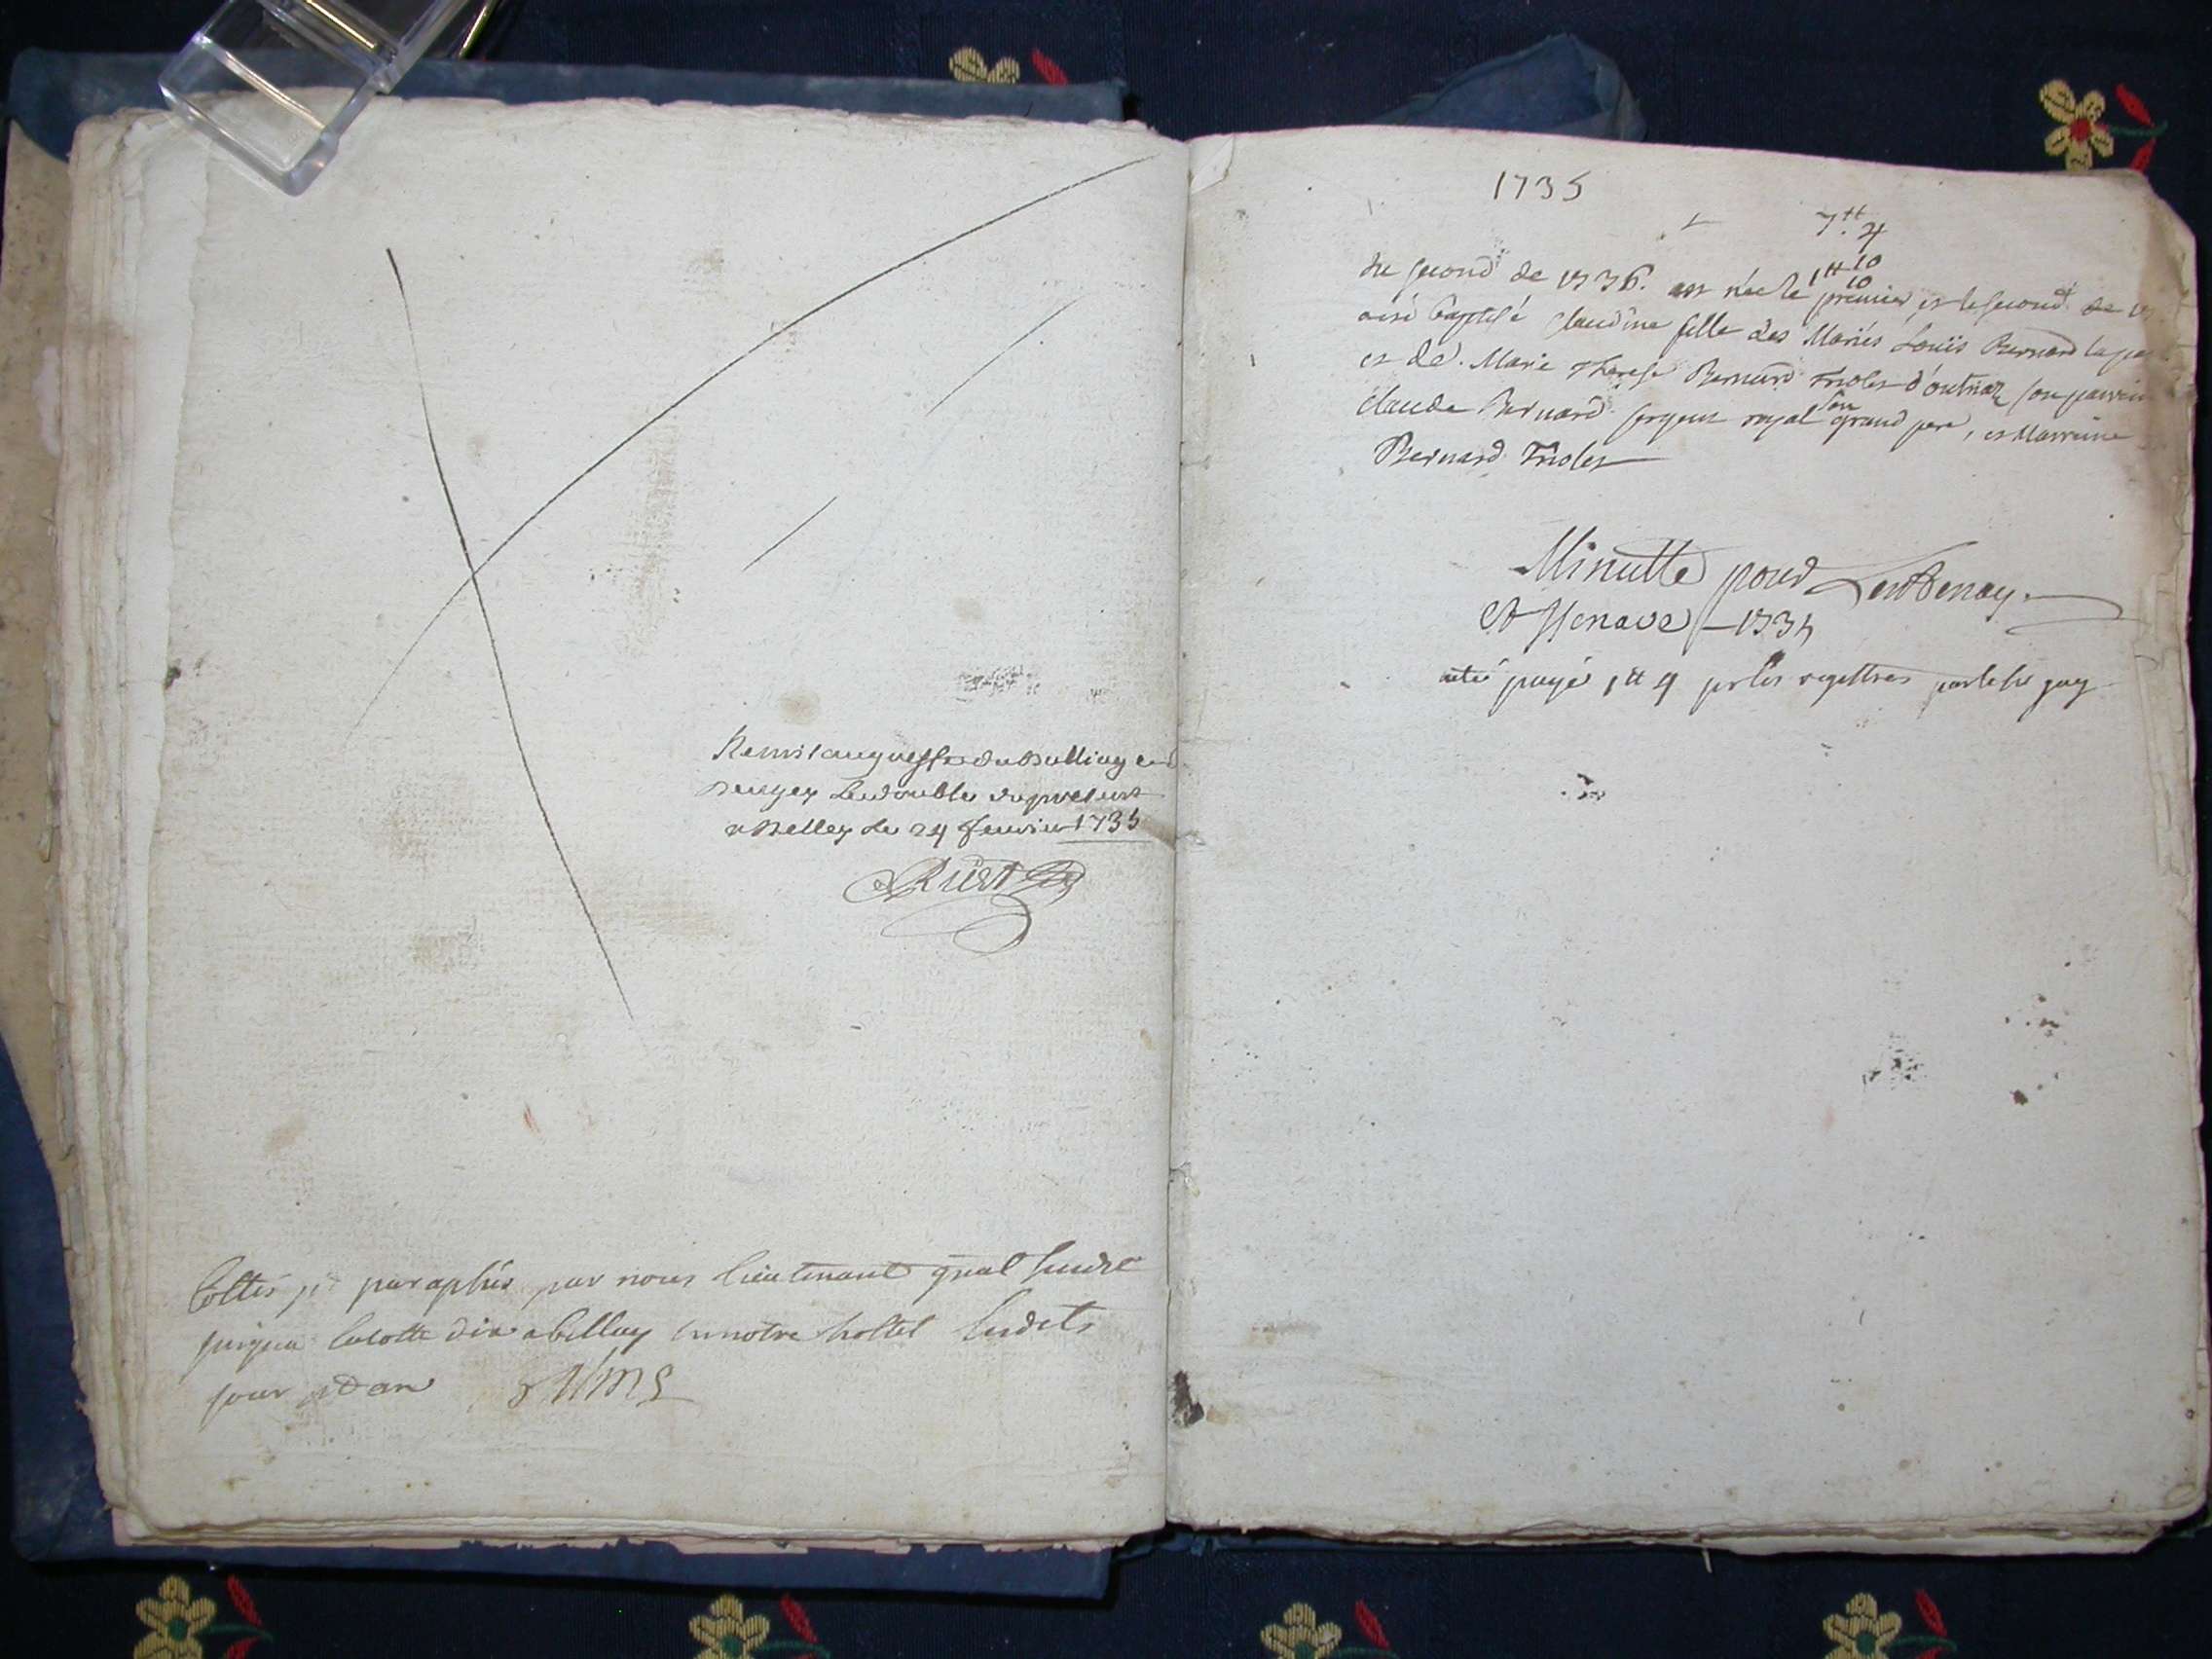 Remis au greffe du Balliage de
Bugey le double du present
a Belley le 24 fevrier 1735
Cottés et paraphés par nous lieutenant gnal susdit
jusqua cotte dix a belley en notre hostel lesdits
jour et an
1735
7tt 4
1tt 10
10
du second de 1736. est née le premier et le second de
a été baptisé claudine fille des Mariés Louïs Bernard
et de Marie Therese Bernard Triolet d'outriaz son parrain
claude Bernard sergent royal son grand pere, et Marraine
Bernard Triolet
Minutte pour Lentenay
et Henave 1735
a été payé 1tt 4 pr les registres par le sr guy